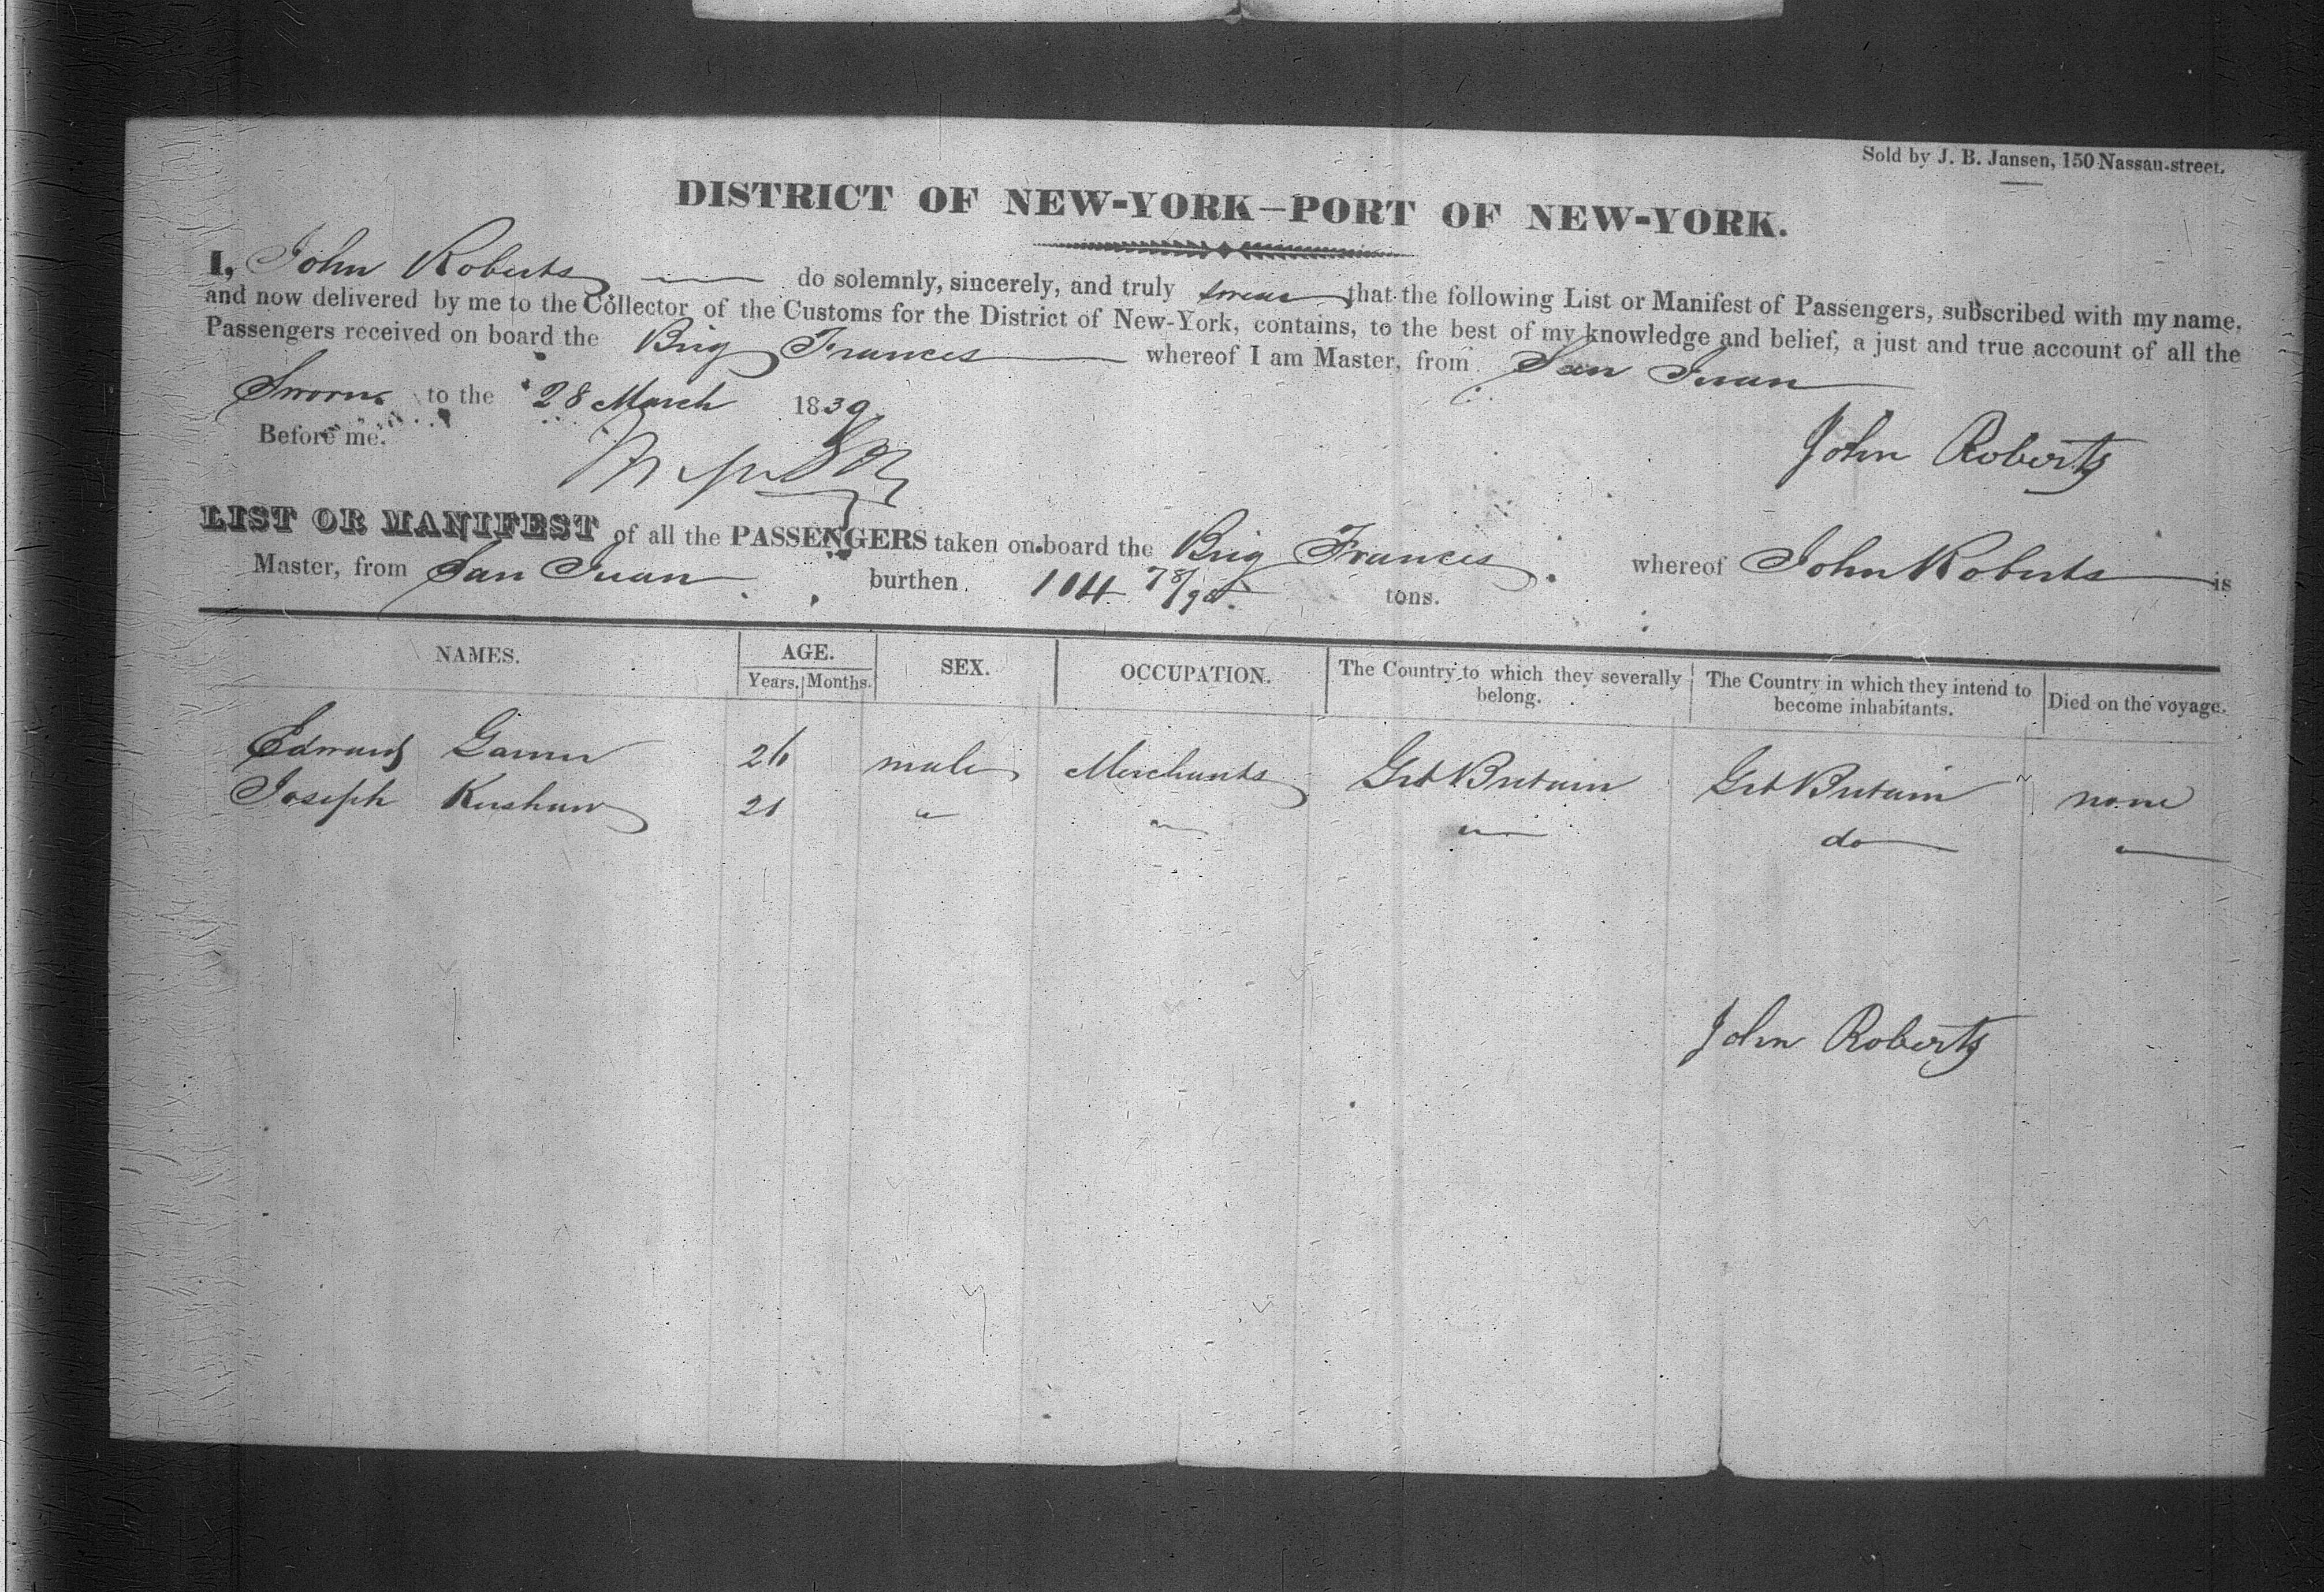 Sold by J. B. Jansen, 150 Nassau-street.
DISTRICT OF NEW-YORK—PORT OF NEW-YORK.
I, John Roberts do solemnly, sincerely, and truly swear that the following List or Manifest of Passengers, subscribed with my name,
and now delivered by me to the Collector of the Customs for the District of New-York, contains, to the best of my knowledge and belief, a just and true account of all the
Passengers received on board the Brig Frances whereof I am Master, from San Juan
Sworn to the 28 March 1839
Before me.
John Roberts
LIST OR MANIFEST of all the PASSENGERS taken on board the Brig Frances whereof John Roberts is
Master, from San Juan burthen 104 78/95 tons.
NAMES. AGE. Years. Months. SEX. OCCUPATION. The Country to which they severally belong. The Country in which they intend to become inhabitants. Died on the voyage.
Edward 26 male Merchants Grt Britain Grt Britain none
Joseph Kershaw 21 " " " do "
John Roberts